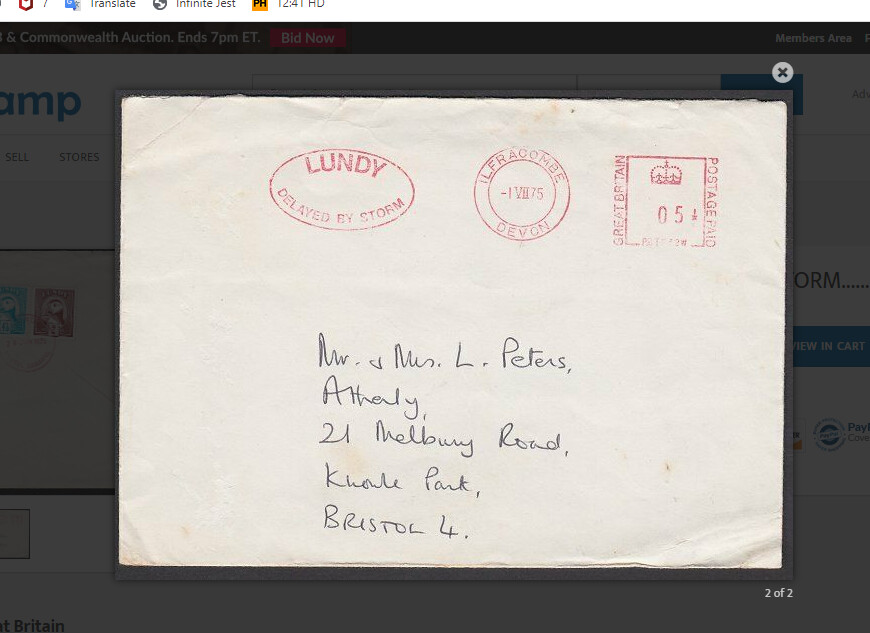 7
Translate
Infinite Jest
PH 12:41 HD
& Commonwealth Auction. Ends 7pm ET.
Bid Now
Members Area
amp
SELL
STORES
LUNDY
DELAYED BY STORM
ILFRACOMBE
-1 VII 75
DEVON
GREAT BRITAIN
05
POSTAGE PAID
ORM......
VIEW IN CART
Mr. & Mrs. L. Peters,
21 Melbury Road,
Knowle Park,
BRISTOL 4.
2 of 2
Britain